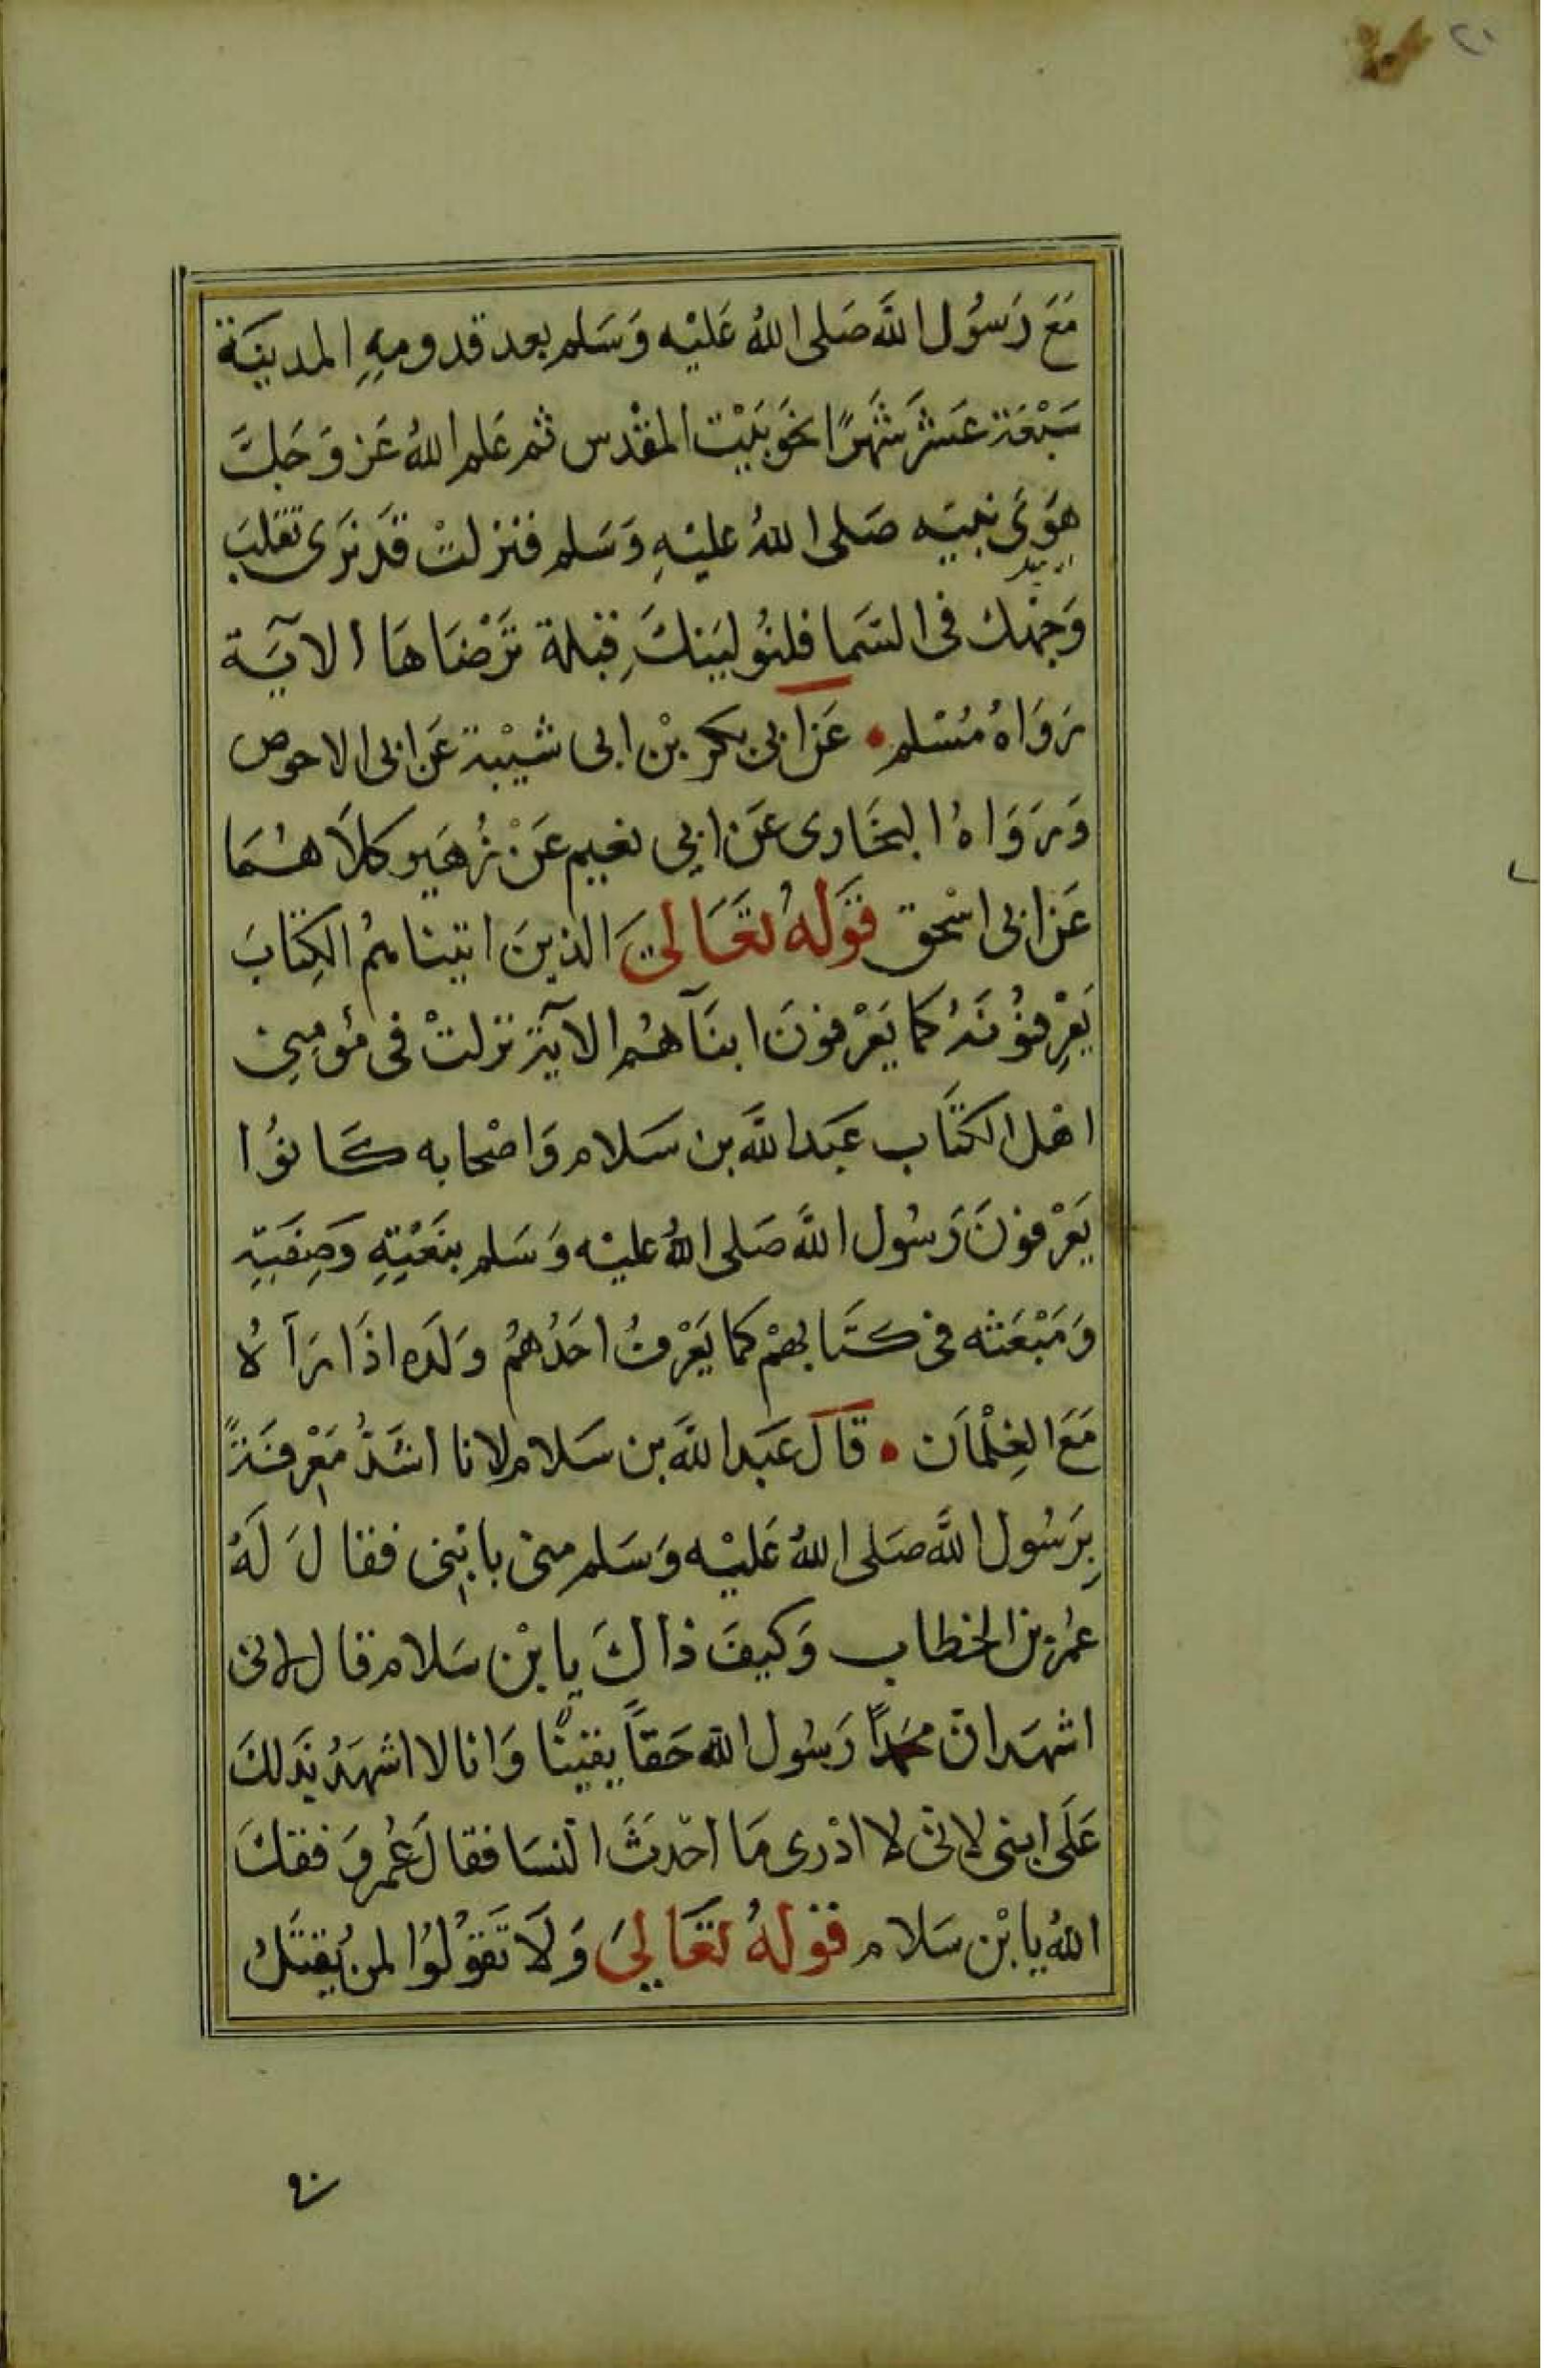 ٢١
مَعَ رَسُول اللَّه صَلى اللهُ عَليْه وَسَلم بعد قدومِهِ المدينَة
سَبْعَة عَشَرَ شَهرًا نحَوَ بَيْت المقْدس ثم عَلم اللهُ عَز وَجَلَّ
هَوَى نبيّه صَلى اللهُ عليْهِ وَسَلم فنزلتْ قدْ نَرَى تقلبَ
وَجْهك فى السَّما فلنُوليَنكَ قِبْلة تَرْضَاهَا الآيَة
رَوَاهُ مُسْلم • عَن أبى بكر بْن ابى شيْبة عَن ابى الاحوص
وَرَوَاهُ البخَارى عَن ابى نعيم عَنْ زُهَير كلَاهُمَا
عَن ابى اسْحق قَوْلهُ تعَالىَ الذينَ اتينَاهُمُ الكِتابَ
يَعْرِفوُنَهُ كما يَعْرفونَ ابنَآهُم الآيَة نزلتْ فى مُؤمِنِى
اهْل الكتَاب عَبَد اللَّه بن سَلام وَاصْحابه كَانوُا
يَعْرفونَ رَسُول اللَّه صَلى اللهُ عليْه وَسَلم بنَعْتِهِ وَصِفَتِهِ
وَمَبْعَثه فى كتَابهمْ كما يَعْرفُ احَدُهمُ وَلَدَه اذَا رَآهُ
مَعَ الغِلْمَان • قَالَ عَبَد اللَّه بن سَلام لانا اشَدُّ مَعْرفَةً
بِرَسُول اللَّه صَلى اللهُ عَليْه وَسَلم منى بابْنِى فقالَ لَهُ
عُمَر بن الخطاب وَكيفَ ذاكَ يابْن سَلام قال لانى
اشهَد انّ محمَّداً رَسُول اللَّه حَقاً يقينًا وَانا لا اشهَدُ بذَلكَ
عَلَى ابنى لانى لا ادْرى مَا احْدَثَ النّسَا فقالَ عُمر وَفقكَ
اللهُ يابْن سَلام قوْلهُ تعَالىَ وَلَا تَقوْلوُا لمن يُقتَلُ
فى